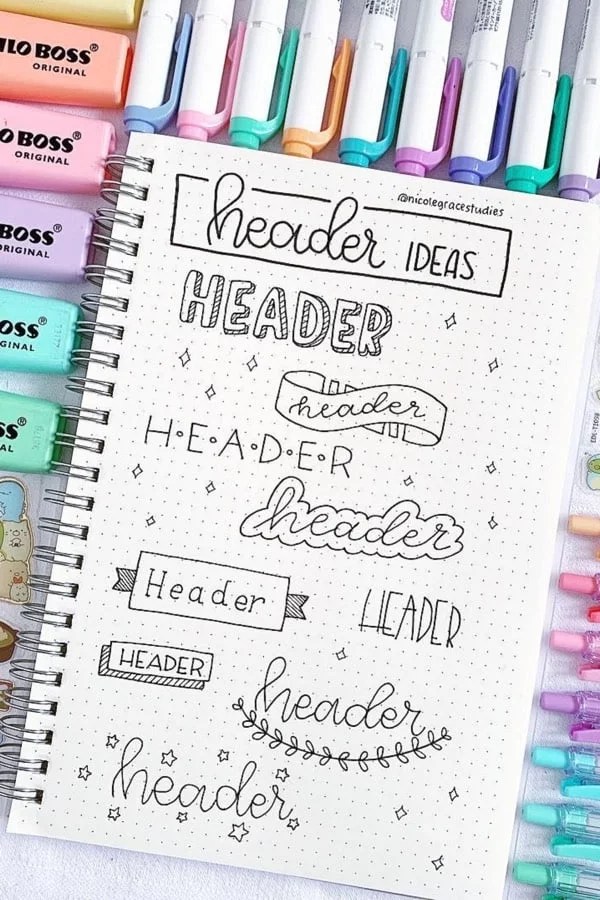 ILO BOSS®
ORIGINAL
O BOSS®
ORIGINAL
BOSS®
GINAL
OSS®
GINAL
SS®
NAL
@nicolegracestudies
header IDEAS
HEADER
header
H•E•A•D•E•R
header
Header
HEADER
HEADER
header
header